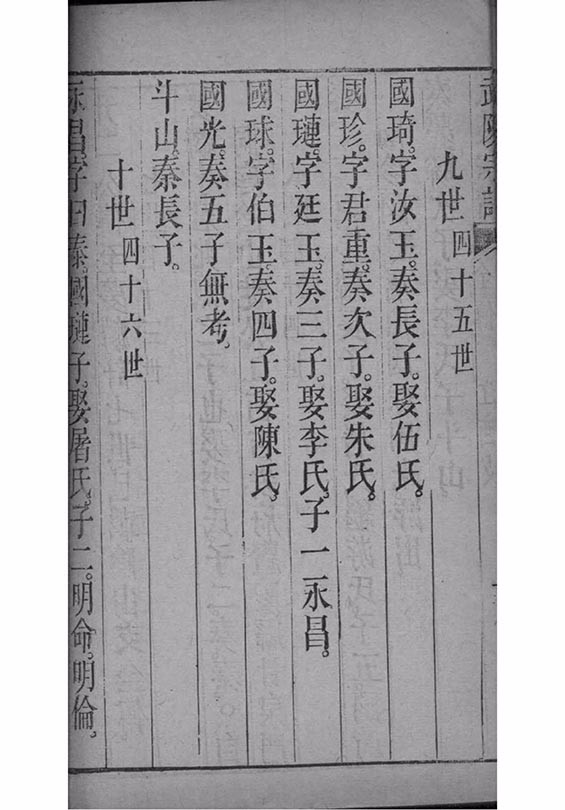 宗譜
九世四十五世
國琦。字汝玉。奏長子。娶伍氏。
國珍。字君重。奏次子。娶朱氏。
國璉。字廷玉。奏三子。娶李氏。子一永昌。
國球。字伯玉。奏四子。娶陳氏。
國光。奏五子無考。
斗山。秦長子。
十世四十六世
永昌字日泰。國璉子。娶屠氏。子二。明命。明倫。